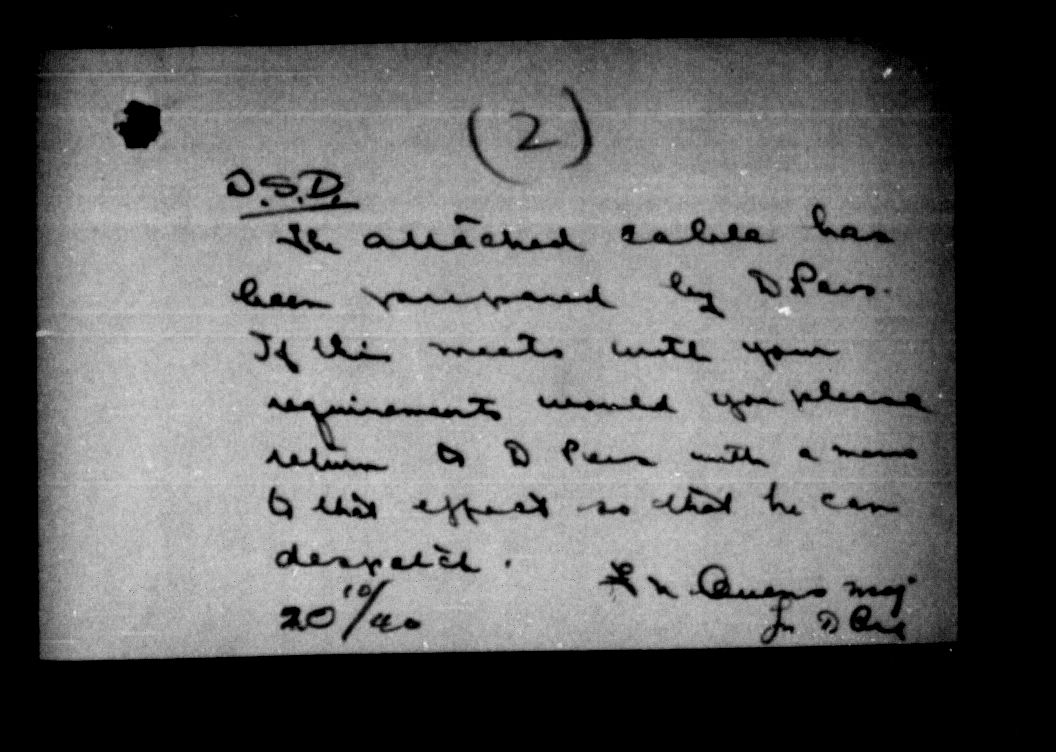 (2)
D.S.D.
The attached cable has
been prepared by D Pers.
If this meets with your
requirements would you please
return to D Pers with a memo
to that effect so that he can
despatch.
Maj
20/10/40
for D